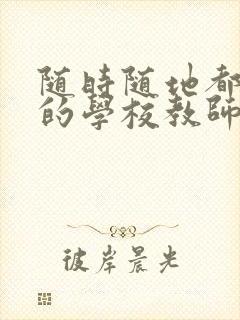 随時随地都
的學校教師
彼岸晨光